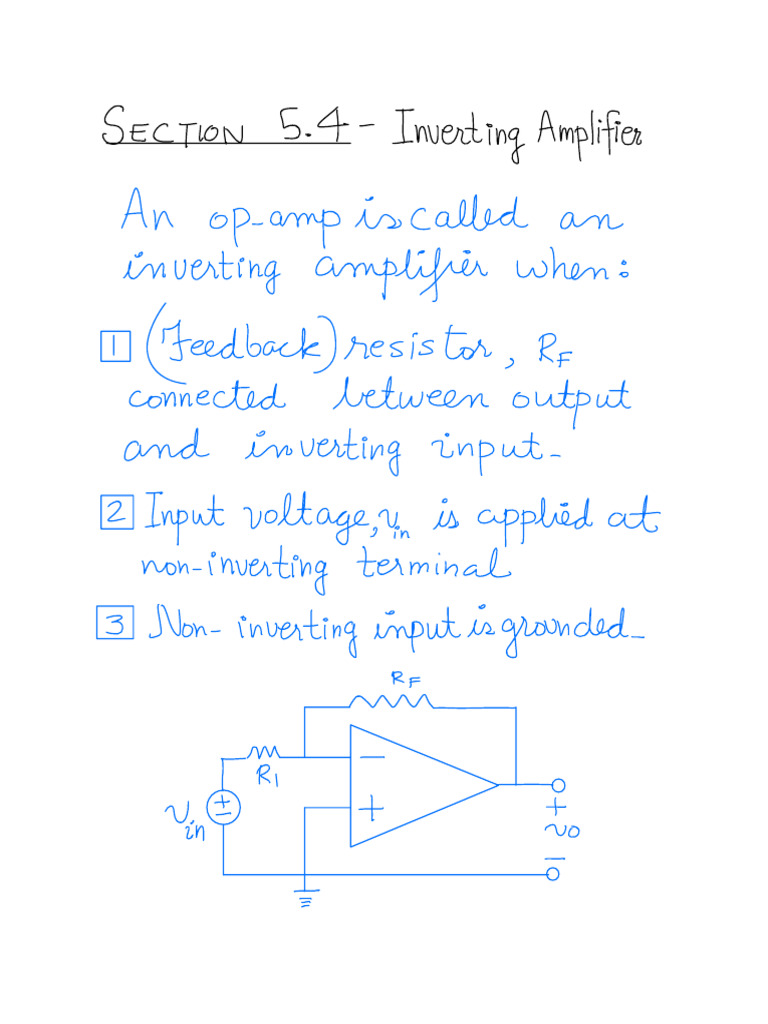 SECTION 5.4 - Inverting Amplifier
An op-amp is called an
inverting amplifier when:
1 (Feedback) resistor, RF
connected between output
and inverting input-
2 Input voltage, vin is applied at
non-inverting terminal
3 Non-inverting input is grounded-
RF
R1
−
+
vin
+
−
+
vo
−